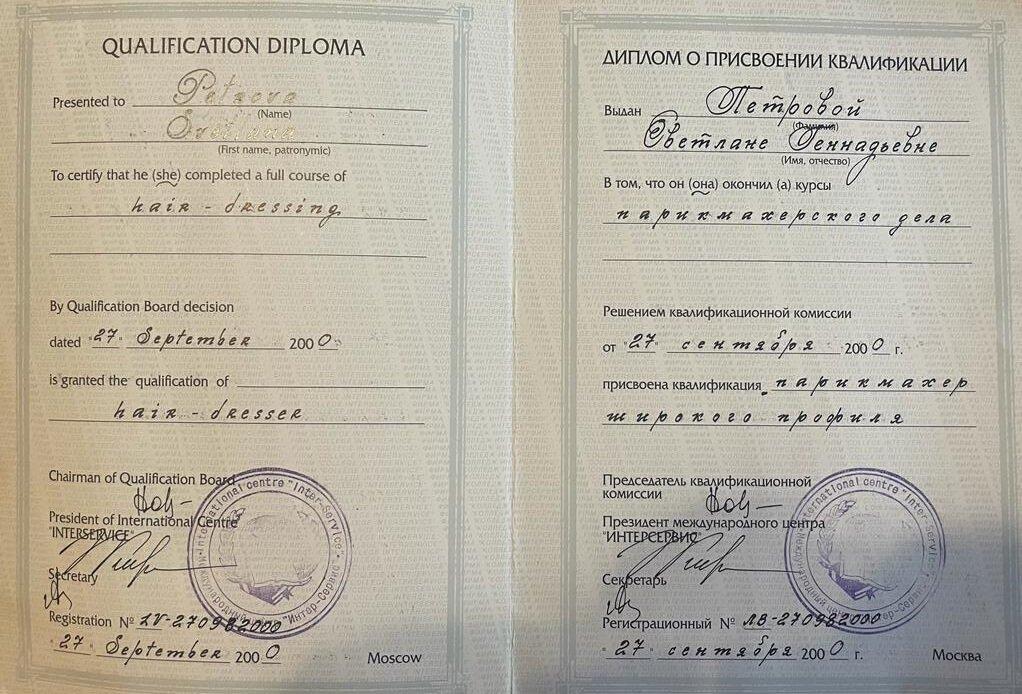 QUALIFICATION DIPLOMA
Presented to Petrova
(Name)
Svetlana
(First name, patronymic)
To certify that he (she) completed a full course of
hair-dressing
By Qualification Board decision
dated "27" September 2000.
is granted the qualification of
hair-dresser
Chairman of Qualification Board
President of International Centre
"INTERSERVICE"
Secretary
Registration № LV-270982000
"27" September 2000
Moscow
International centre "Inter-Service"
"Интер-Сервис"
ДИПЛОМ О ПРИСВОЕНИИ КВАЛИФИКАЦИИ
Выдан Петровой
(Фамилия)
Светлане Геннадьевне
(Имя, отчество)
В том, что он (она) окончил (а) курсы
парикмахерского дела
Решением квалификационной комиссии
от "27" сентября 2000 г.
присвоена квалификация парикмахер
широкого профиля
Председатель квалификационной
комиссии
Президент международного центра
"ИНТЕРСЕРВИС"
Секретарь
Регистрационный № ЛВ-270982000
"27" сентября 2000 г.
Москва
International centre "Inter-Service"